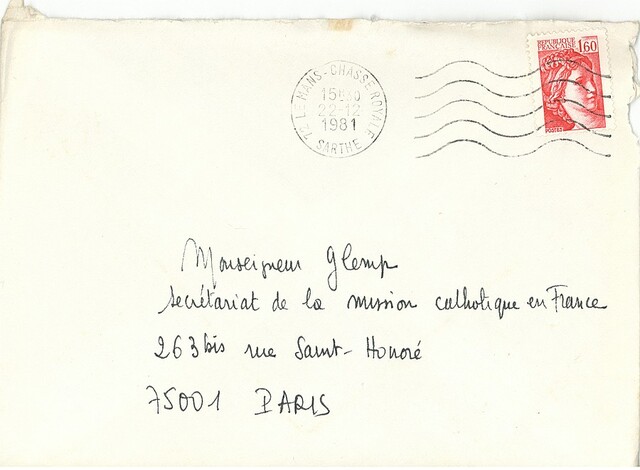 REPUBLIQUE
FRANÇAISE
1,60
POSTES
72 LE MANS-CHASSE ROYALE
15H30
22-12
1981
SARTHE
Monseigneur Glemp
secrétariat de la mission catholique en France
263 bis rue Saint-Honoré
75001 PARIS